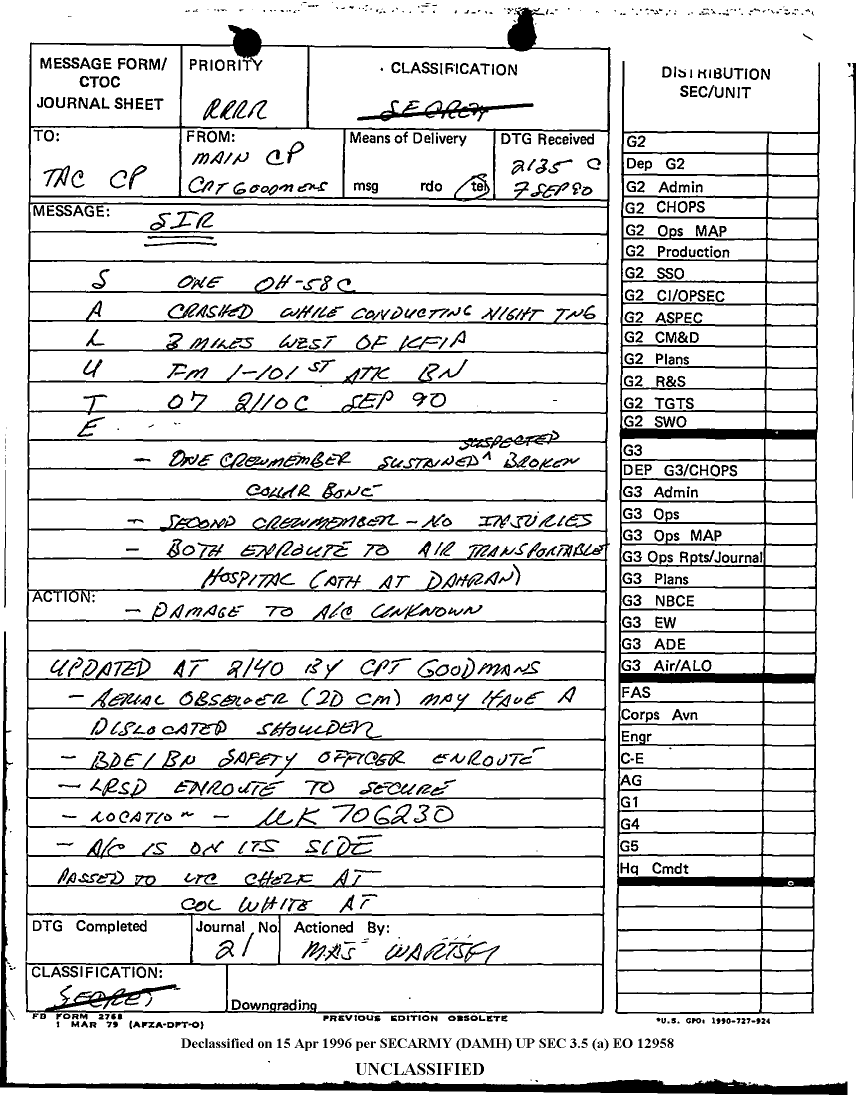 MESSAGE FORM/
CTOC
JOURNAL SHEET
PRIORITY
RRRR
CLASSIFICATION
SECRET
TO:
TAC CP
FROM:
MAIN CP
CPT GOODMENS
Means of Delivery
msg rdo tel
DTG Received
2135 C
7 SEP 90
MESSAGE:
SIR
S ONE OH-58C
A CRASHED WHILE CONDUCTING NIGHT TNG
L 3 MILES WEST OF KFIA
U FM 1-101ST ATK BN
T 07 2110C SEP 90
E
SUSPECTED
- ONE CREWMEMBER SUSTAINED ^ BROKEN
COLLAR BONE
- SECOND CREWMEMBER - NO INJURIES
- BOTH ENROUTE TO AIR TRANSPORTABLE
HOSPITAL (ATH AT DAHRAN)
ACTION:
- DAMAGE TO A/C UNKNOWN
UPDATED AT 2140 BY CPT GOODMANS
- AERIAL OBSERVER (2D CM) MAY HAVE A
DISLOCATED SHOULDER
- BDE/BN SAFETY OFFICER ENROUTE
- LRSD ENROUTE TO SECURE
- LOCATION - UK 706230
- A/C IS ON ITS SIDE
PASSED TO LTC AT
COL WHITE AT
DTG Completed
Journal No.
21
Actioned By:
MAJ
CLASSIFICATION:
SECRET
Downgrading
FB FORM 2768
1 MAR 79 (AFZA-DPT-O)
PREVIOUS EDITION OBSOLETE
DISTRIBUTION
SEC/UNIT
G2
Dep G2
G2 Admin
G2 CHOPS
G2 Ops MAP
G2 Production
G2 SSO
G2 CI/OPSEC
G2 ASPEC
G2 CM&D
G2 Plans
G2 R&S
G2 TGTS
G2 SWO
G3
DEP G3/CHOPS
G3 Admin
G3 Ops
G3 Ops MAP
G3 Ops Rpts/Journal
G3 Plans
G3 NBCE
G3 EW
G3 ADE
G3 Air/ALO
FAS
Corps Avn
Engr
C-E
AG
G1
G4
G5
Hq Cmdt
*U.S. GPO: 1990-727-924
Declassified on 15 Apr 1996 per SECARMY (DAMH) UP SEC 3.5 (a) EO 12958
UNCLASSIFIED